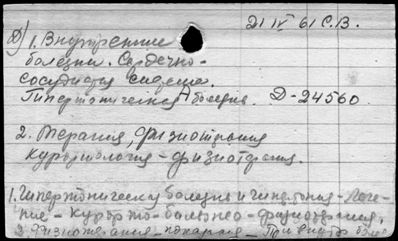 21 IV 61 С.В.
Д) 1. Внутренние
болезни. Сердечно-
сосудистая система.
Гипертоническая болезнь. Д-24560
2. Терапия, физиотерапия
Курортология - физиотерапия.
1. Гипертоническая болезнь и гипертония - Лече-
ние - Курорто-бальнео-физиотерапия.
2. Физиотерапия - При внутр.